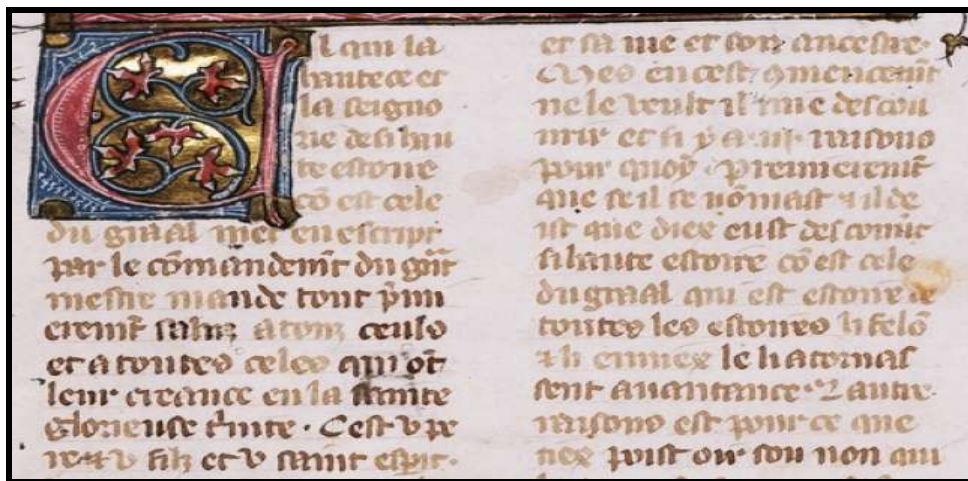 Cil qui la
hautece et
la seigno
rie de si hau
te estoire
cō est cele
du graal met en escript
par le cōmandemīt du gn̄t
mestre mande tout p̄m
eremīt saluz a touz ceuls
et a toutes celes qui ōt
leur creance en la sainte
glorieuse t̄nite. Cest v pe
re ⁊ v filz et v saint esp̄it.
et sa uie et son ancestre.
Mes en cest ꝯmencemīt
ne le veult il mie descou
urir et si y a .iii. raisons
pour quoy. Premieremīt
que se il se nōmast ⁊ il de
ist que diex eust descouūt
si haute estoire cō est cele
du graal qui est estoire de
toutes les estoires li felō
⁊ li enuiex le li atornas
sent a uantance. L autre
raisons est pour ce que
tiex poist oir son non qui